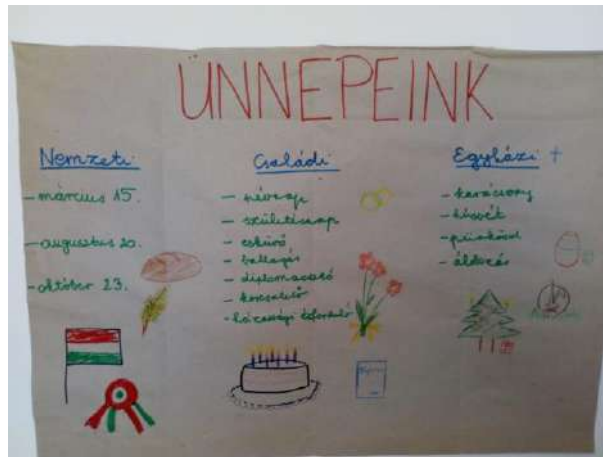 ÜNNEPEINK
Nemzeti
- március 15.
- augusztus 20.
- október 23.
Családi
- névnap
- születésnap
- esküvő
- ballagás
- diplomaosztó
- keresztelő
- házassági évforduló
Egyházi
- karácsony
- húsvét
- pünkösd
- áldozás